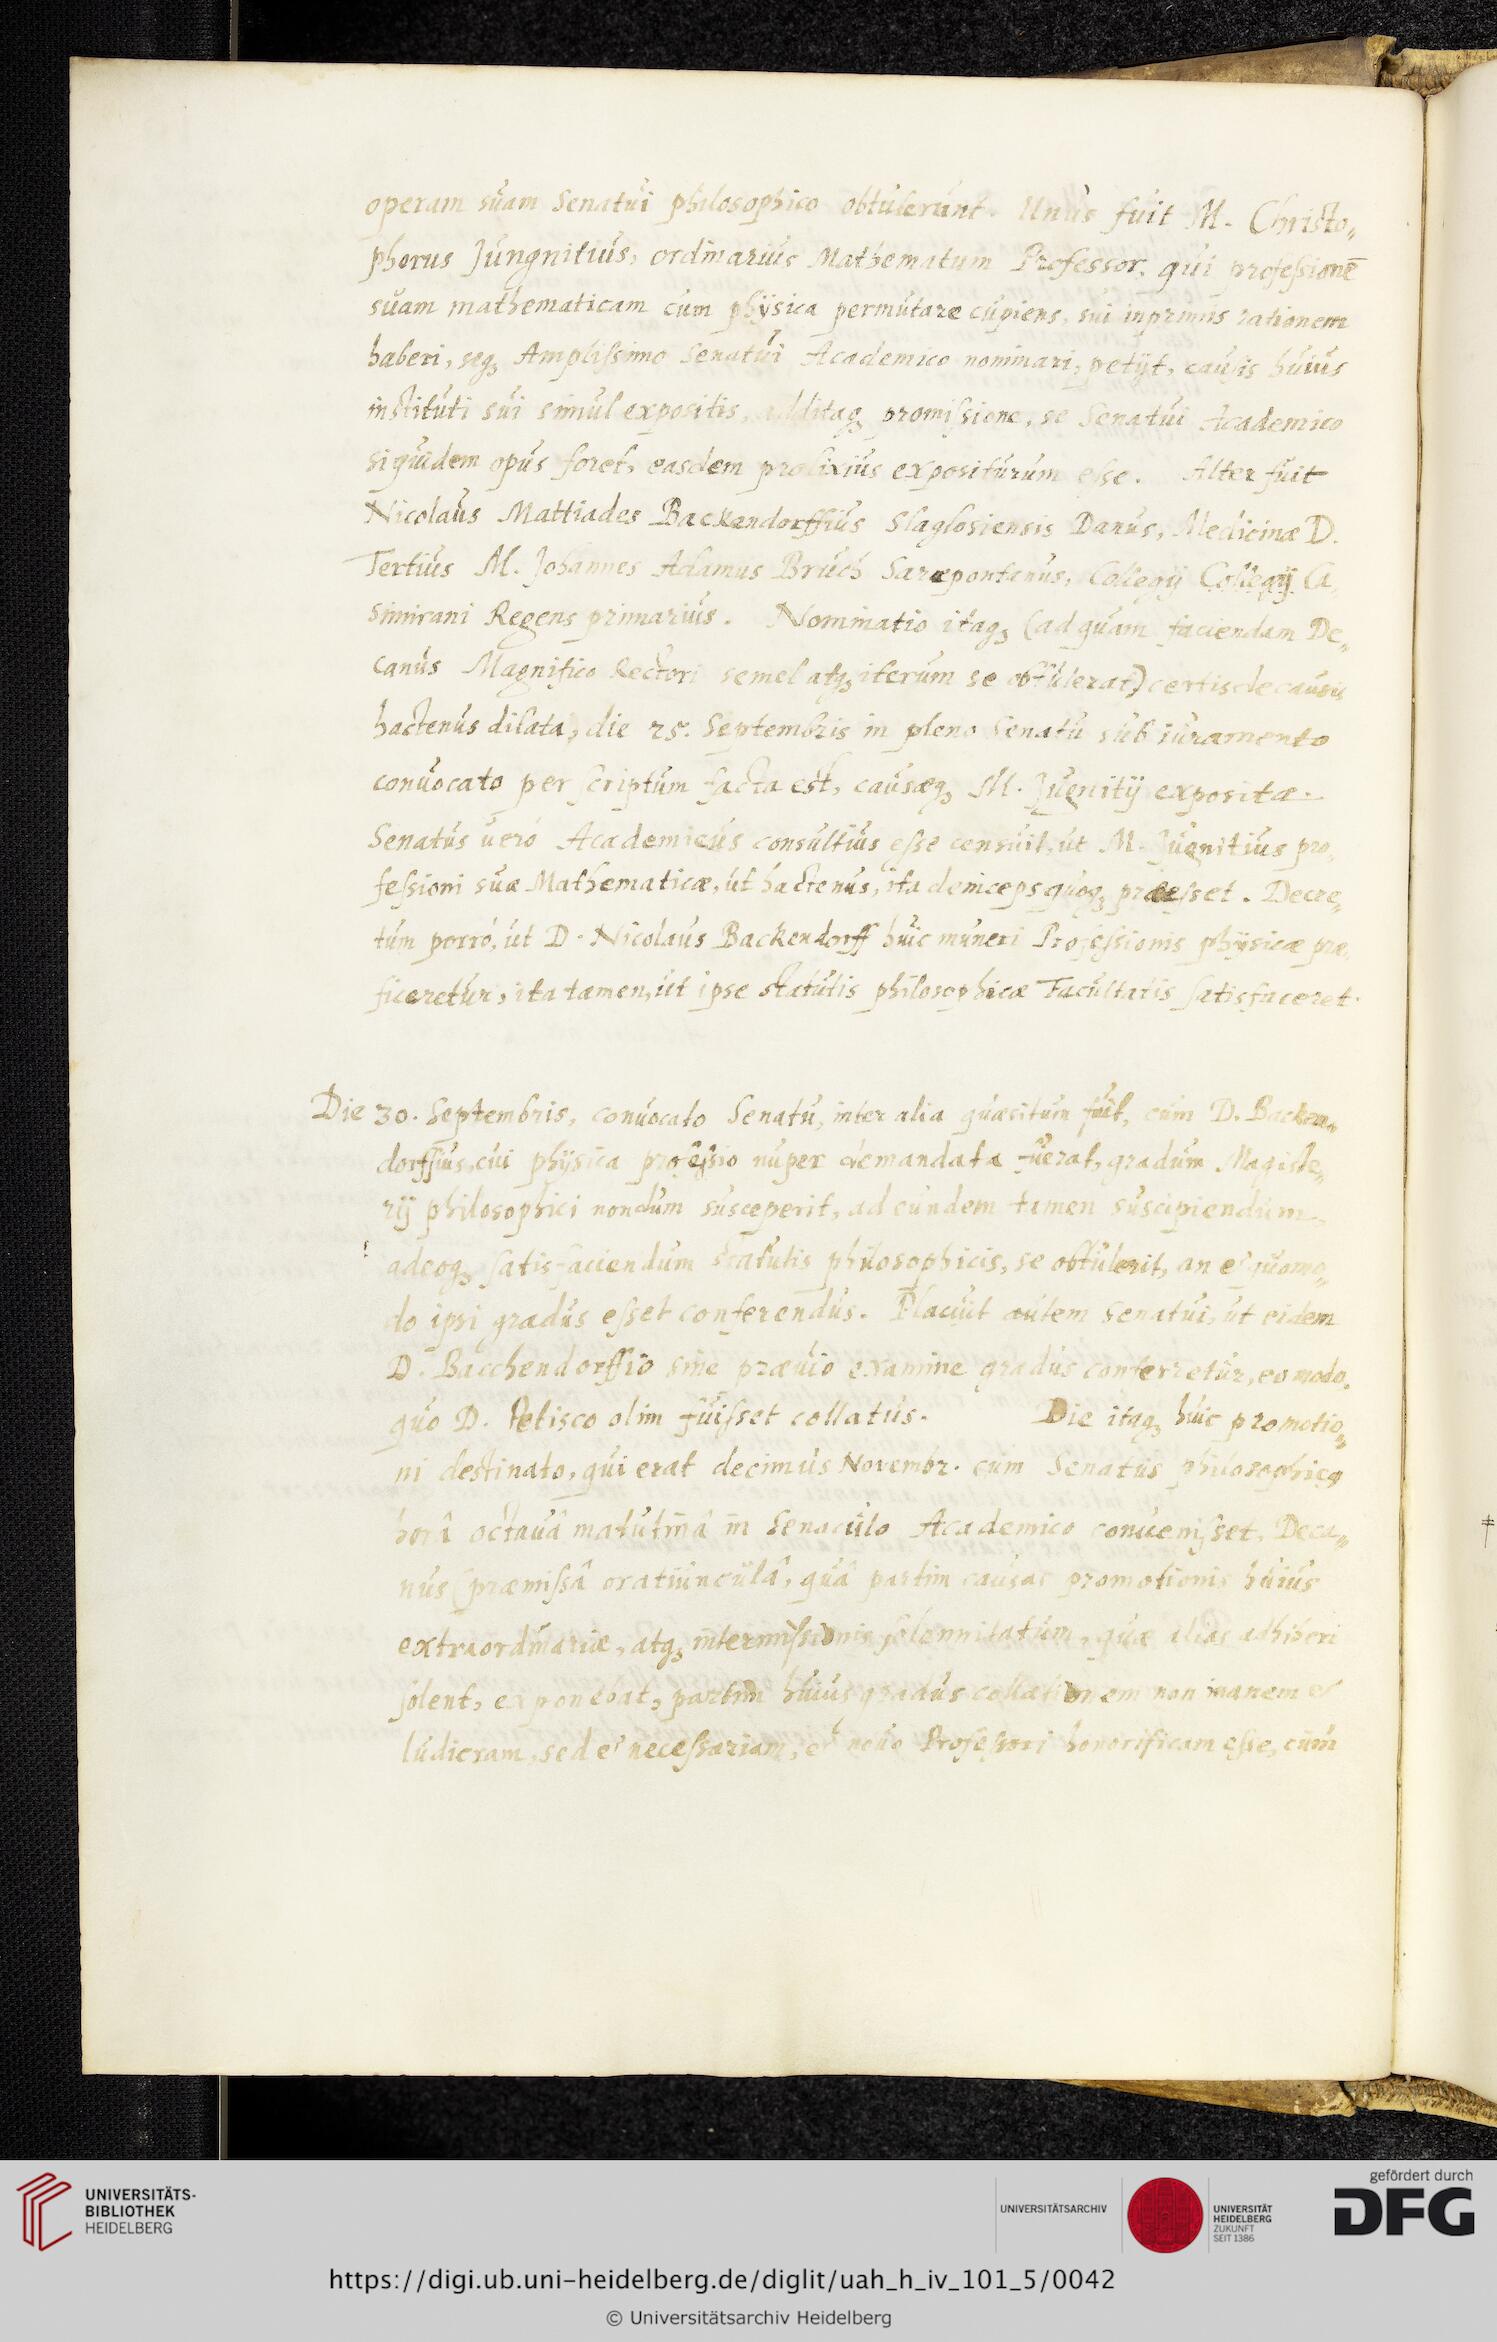 operam suam Senatui philosophico obtulerunt. Unus fuit M. Christo„
phorus Jungnitius, ordinarius Mathematum Professor, qui profeſsionē
suam mathematicam cum physica permutare cupiens, sui inprimis rationem
haberi, seq₃ Ampliſsimo Senatui Academico nominari, petijt, causis huius
instituti sui simul expositis, additaq₃ promiſsione, se Senatui Academico
siquidem opus foret, easdem prolixius expositurum eſse. Alter fuit
Nicolaus Mattiades Backendorffius Slaglosiensis Danus, Medicinæ D.
Tertius M. Johannes Adamus Bruch Saræpontanus, Collegij Collegij Ca„
simirani Regens primarius. Nominatio itaq₃ (ad quam faciendam De„
canus Magnifico Rectori semel atq₃ iterum se obtulerat) certis de causis
hactenus dilata, die 25. Septembris in pleno Senatu sub iuramento
conuocato per scriptum facta est, causæq₃ M. Jugnitij expositæ.
Senatus uerò Academicus consultius eſse censuit, ut M. Jugnitius pro„
feſsioni suæ Mathematicæ, ut hactenus, ita deinceps quoq₃ præeſset. Decre„
tum porrò, ut D. Nicolaus Backendorff huic muneri Profeſsionis physicæ præ„
ficeretur, ita tamen, ut ipse statutis philosophicæ Facultatis satisfaceret.
Die 30. Septembris, conuocato Senatu, inter alia quæsitum fuit, cum D. Backen„
dorffius, cui physica profeſsio nuper demandata fuerat, gradum Magiste„
rij philosophici nondum susceperit, ad eundem tamen suscipiendum,
adeoq₃ satisfaciendum statutis philosophicis, se obtulerit, an et quomo„
do ipsi gradus eſset conferendus. Placuit autem Senatui, ut eidem
D. Bacchendorffio sine præuio examine gradus conferretur, eo modo,
quo D. Petisco olim fuiſset collatus. Die itaq₃ huic promotio„
ni destinato, qui erat decimus Novembr. cum Senatus philosophicus
horâ octauâ matutinâ in Senaculo Academico conueniſset, Deca„
nus (præmiſsâ oratiunculâ, quâ partim causas promotionis huius
extraordinariæ, atq₃ intermiſsionis solennitatum, quæ alias adhiberi
solent, exponebat, partim huius gradus collationem non inanem et
ludicram, sed et neceſsariam, et nouo Profeſsori honorificam eſse, cum
UNIVERSITÄTS-
BIBLIOTHEK
HEIDELBERG
UNIVERSITÄTSARCHIV
UNIVERSITÄT
HEIDELBERG
ZUKUNFT
SEIT 1386
gefördert durch
DFG
https://digi.ub.uni-heidelberg.de/diglit/uah_h_iv_101_5/0042
© Universitätsarchiv Heidelberg